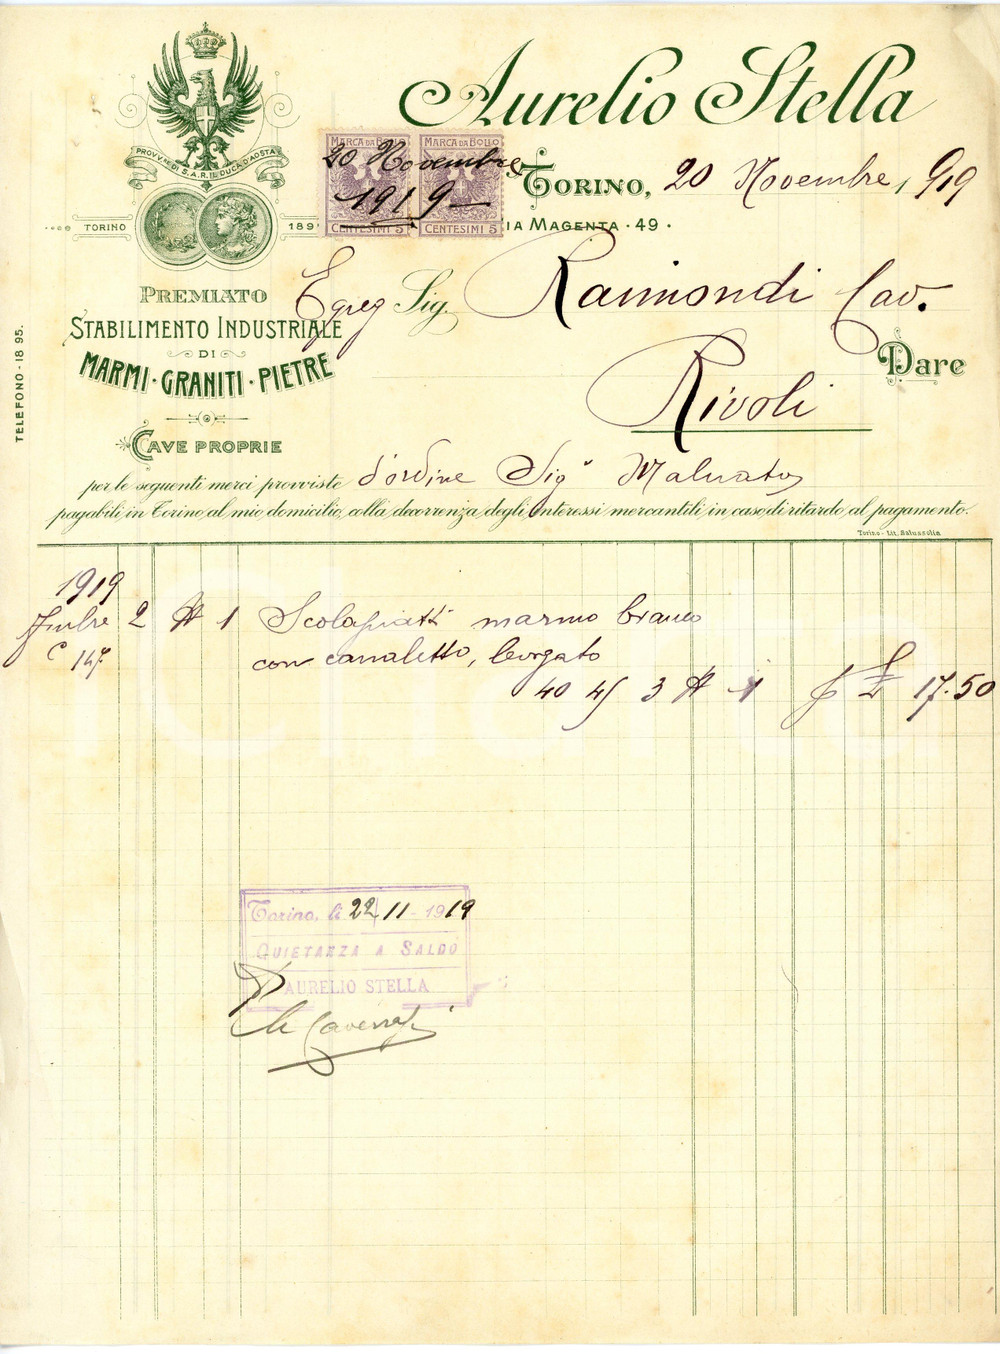 Aurelio Stella
PROVV. DI S.A.R. IL DUCA D'AOSTA
TORINO 189
MARCA DA BOLLO MARCA DA BOLLO
20 Novembre
1919
CENTESIMI 5 CENTESIMI 5
TORINO, 20 Novembre, 919
IA MAGENTA · 49 ·
PREMIATO
STABILIMENTO INDUSTRIALE
DI
MARMI · GRANITI · PIETRE
CAVE PROPRIE
TELEFONO - 18 95.
Egreg Sig. Raimondi Cav.
Rivoli
Dare
per le seguenti merci provviste d'ordine Sig.
pagabili in Torino, al mio domicilio, colla decorrenza degli interessi mercantili in caso di ritardo al pagamento.
Torino - Lit. Salussolia
1919
2 # 1 Scolapiatti marmo bianco
C 147 con canaletto,
40 45 3 # 1 £ 17.50
Torino, li 22/11 - 1919
QUIETANZA A SALDO
AURELIO STELLA